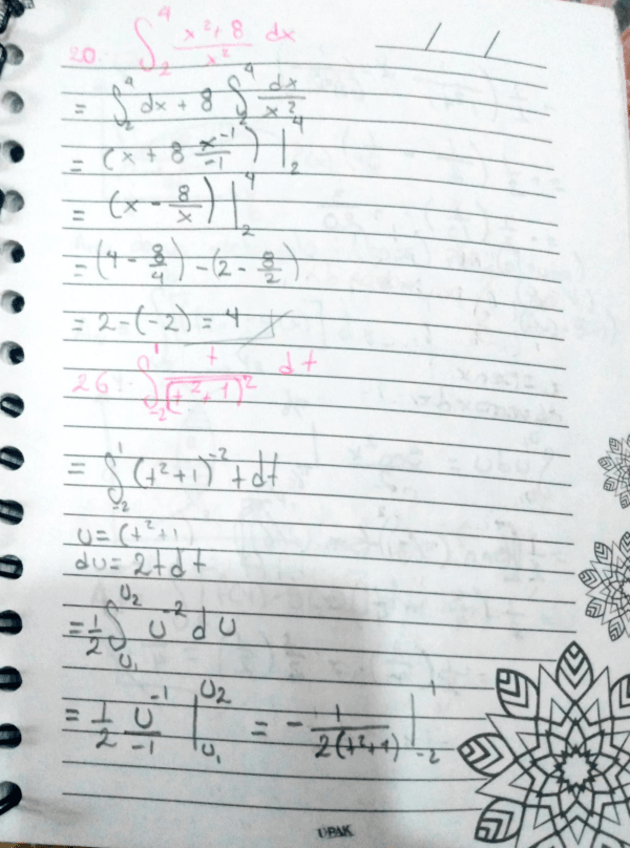 20. ∫₂⁴ (x²+8)/x² dx
= ∫₂⁴ dx + 8 ∫₂⁴ dx/x²
= (x + 8 x⁻¹/-1) |₂⁴
= (x - 8/x) |₂⁴
= (4 - 8/4) - (2 - 8/2)
= 2 - (-2) = 4
26. ∫₋₂¹ t/(t²+1)² dt
= ∫₋₂¹ (t²+1)⁻² t dt
u = (t²+1)
du = 2t dt
= 1/2 ∫ᵤ₁ᵘ² u⁻² du
= 1/2 u⁻¹/-1 |ᵤ₁ᵘ² = - 1/2(t²+1) |₋₂¹